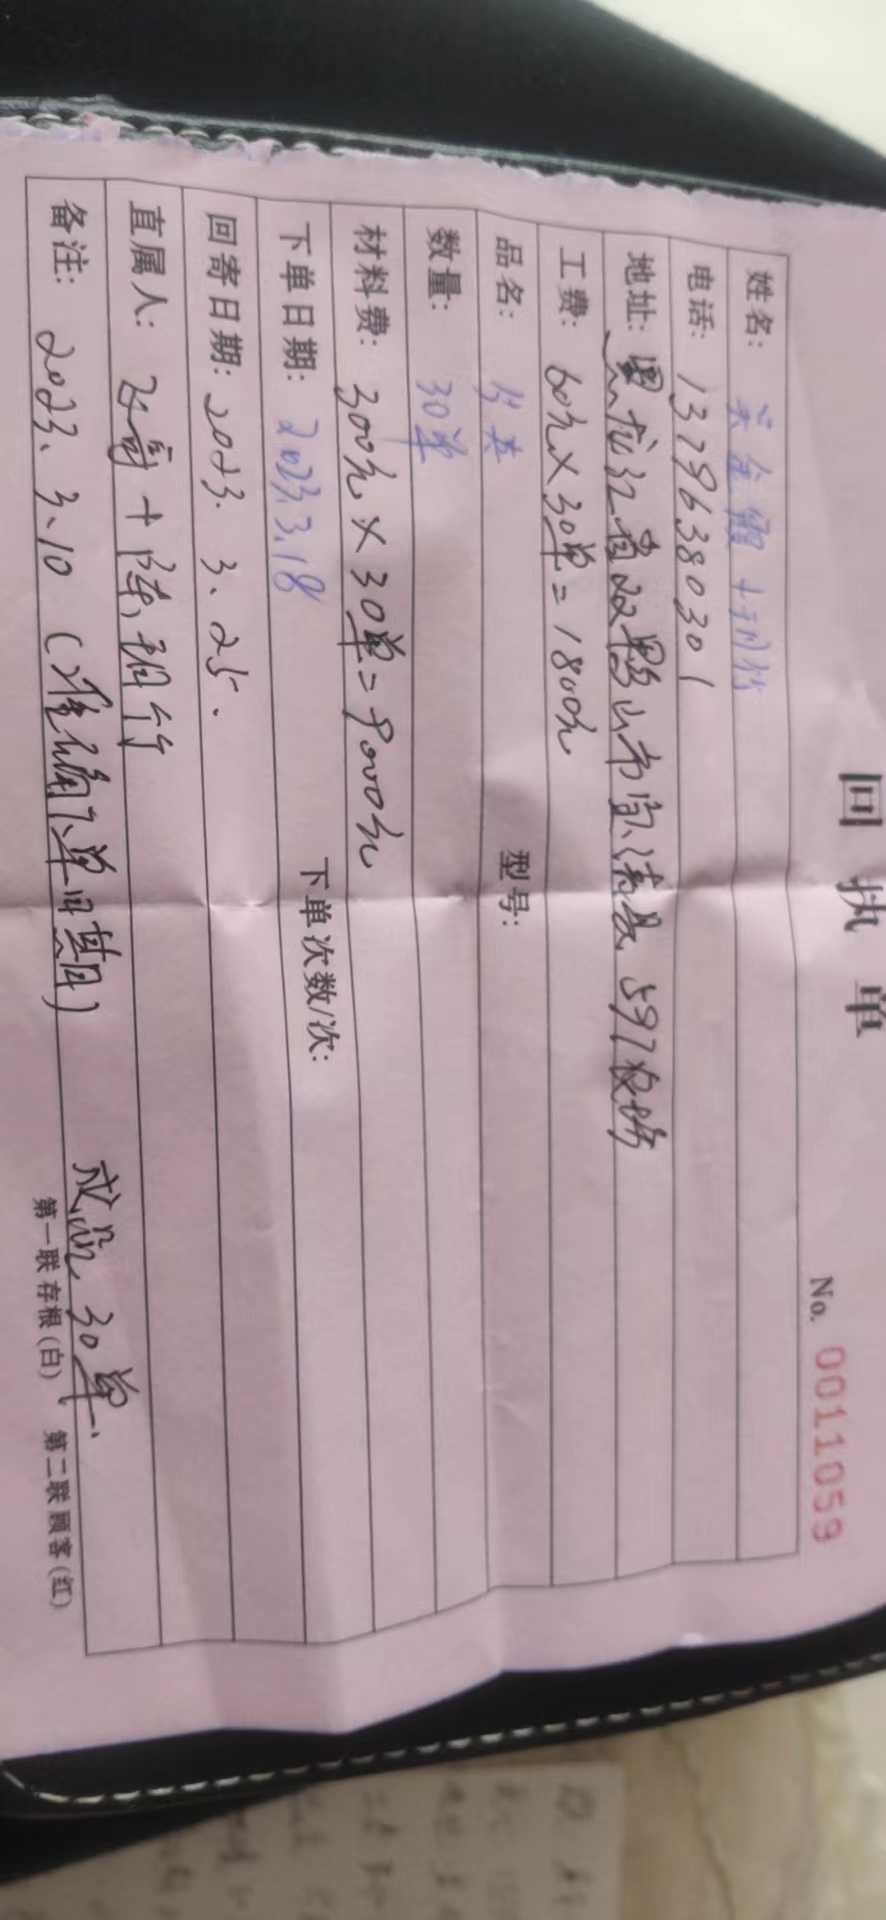 回执单
No. 0011059
姓名:
电话: 13796638030 1
地址: 黑龙江省双鸭山市宝清县 597农场
工费: 60元×30单=1800元
品名: 型号:
数量: 30单
材料费: 300元×30单=9000元
下单日期: 2023.3.18 下单次数/次:
回寄日期: 2023. 3. 25.
直属人: +陈
备注: 2023. 3. 10 (准确下单日期) 成品 30单.
第一联存根(白) 第二联顾客(红)